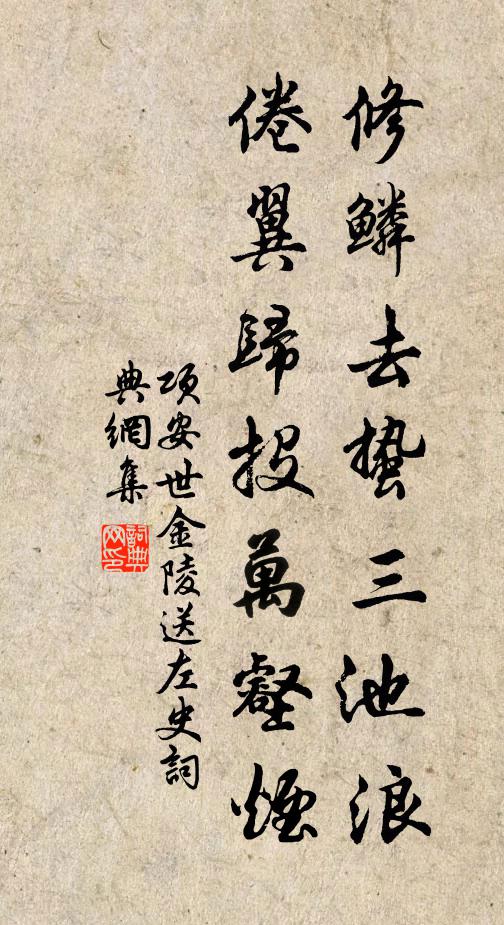 修鱗去蟄三池浪
倦翼歸投萬壑煙
項安世金陵送左史詞
典網集
詞典
网印